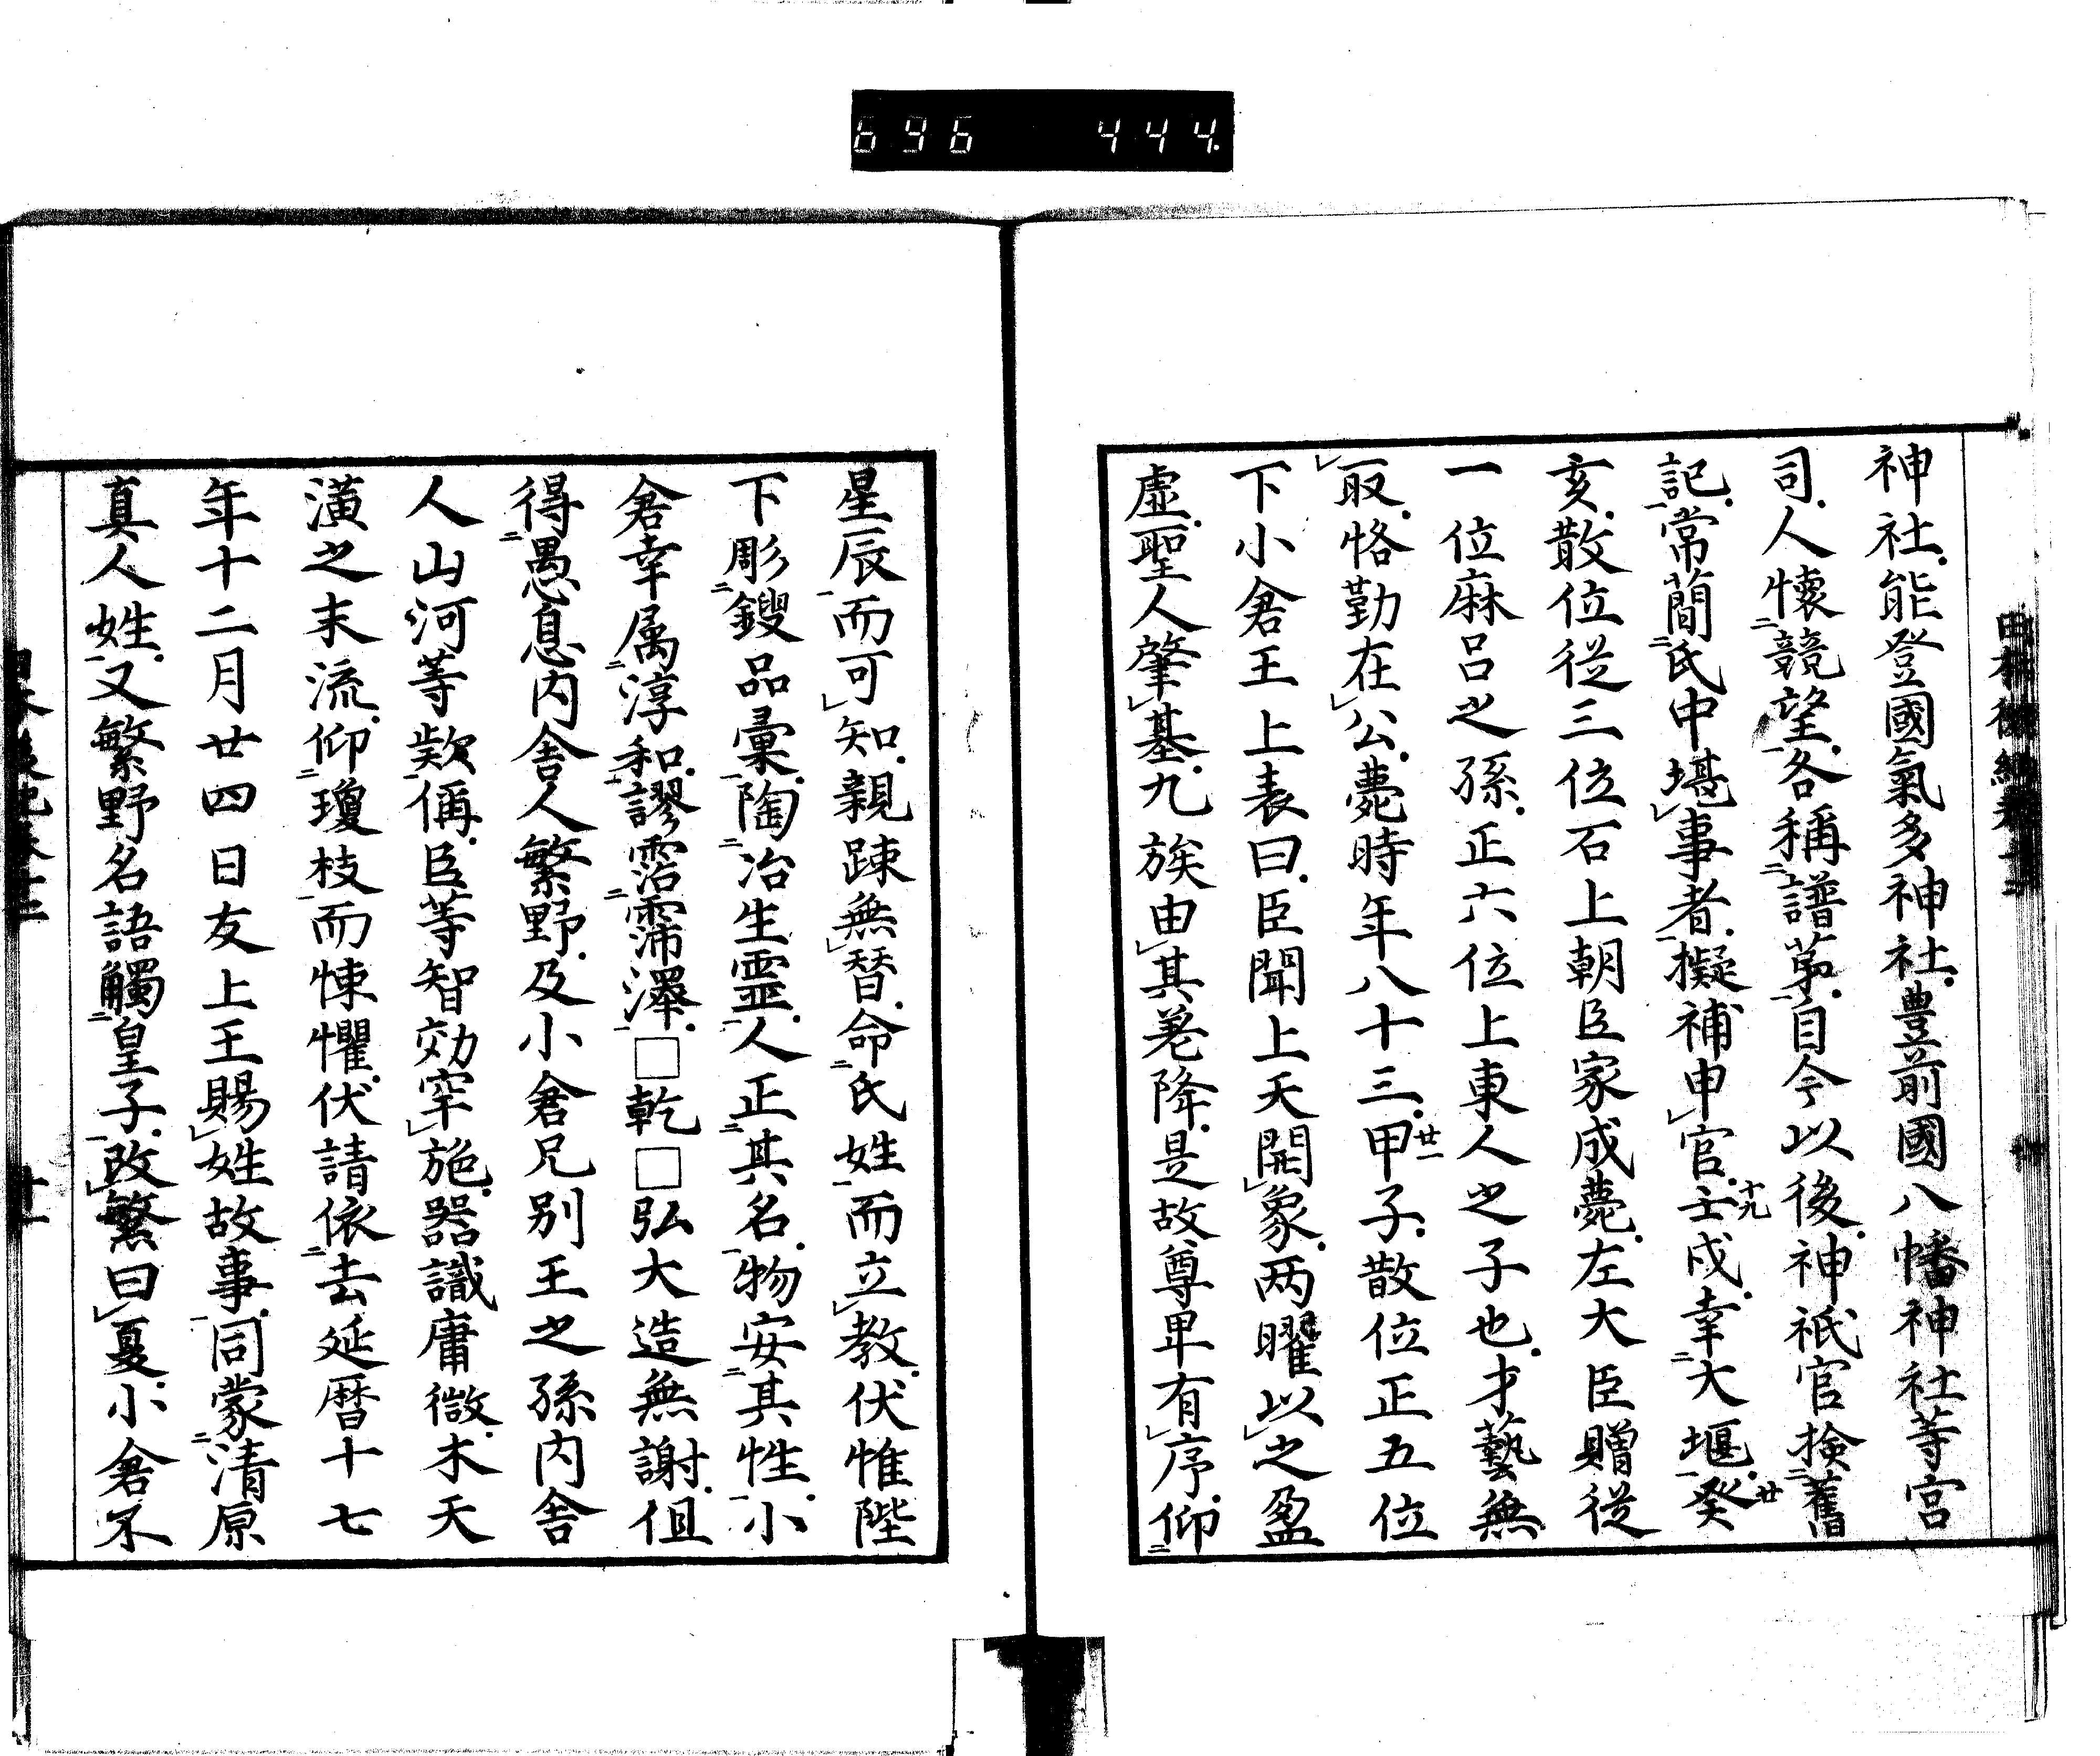 696 444.
神社能登國氣多神社豊前國八幡神社等宮
司人懷競望各稱譜苐自今以後神祇官撿舊
記常簡氏中堪事者擬補申官十九壬戌幸大堰廿癸
亥散位従三位石上朝臣家成薨左大臣贈従
一位麻呂之孫正六位上東人之子也才藝無
取恪勤在公薨時年八十三廿一甲子散位正五位
下小倉王上表曰臣聞上天開象两曜以之盈
虚聖人肇基九族由其差降是故尊卑有序仰
星辰而可知親踈無朁命氏姓而立教伏惟陛
下彫鎪品彙陶冶生霊人正其名物安其性小
倉幸属淳和謬霑霈澤□乾□弘大造無謝但
得愚息内舎人繁野及小倉兄別王之孫内舎
人山河等欵偁臣等智効罕施器識庸微木天
潢之末流仰瓊枝而悚懼伏請依去延暦十七
年十二月廿四日友上王賜姓故事同蒙清原
真人姓又繁野名語觸皇子改繁曰夏小倉不